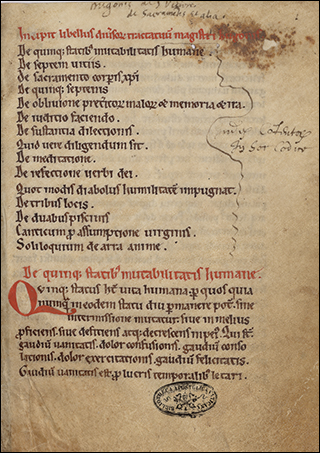 Hugonis de S. Victore
de Sacramentis
Incipit libellus diuersor tractatuū magistri Hugonis
De quinq; statib' mutabilitatis humane.
De septem uitiis.
De sacramento corp̄is xp̄i
De quinq; septenis
De obliuione preteritor malor & memoria &
De iudicio faciendo.
De substantia dilectionis.
Quid uere diligendum sit.
De meditatione.
De refectione uerbi dei.
Quot modis diabolus humilitatē impugnat.
De tribus locis.
De duabus piscinis
Canticum p assumptione uirginis
Soliloquium de arra anime.
in hoc Codice
De quinq; statib' mutabilitatis humane.
Quinq; status hēt uita humana, p quos quia
nunquā in eodem statu diu pmanere potest, sine
intermissione mutatur, siue in melius
pficiens, siue deficiens atq; decrescens in peī.
gaudiū uanitatis. dolor confusionis. gaudiū conso
lationis. dolor exercitationis. gaudiū felicitatis.
Gaudiū uanitatis est, p lucris temporalib' letari.